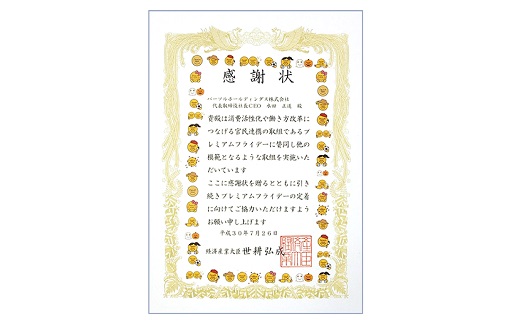 感謝状
パーソルホールディングス株式会社
代表取締役社長CEO 水田 正道 殿
貴殿は消費活性化や働き方改革に
つなげる官民連携の取組であるプ
レミアムフライデーに賛同し他の
模範となるような取組を実施いた
だいています
ここに感謝状を贈るとともに引き
続きプレミアムフライデーの定着
に向けてご協力いただけますよう
お願い申し上げます
平成30年7月26日
経済産業大臣 世耕弘成